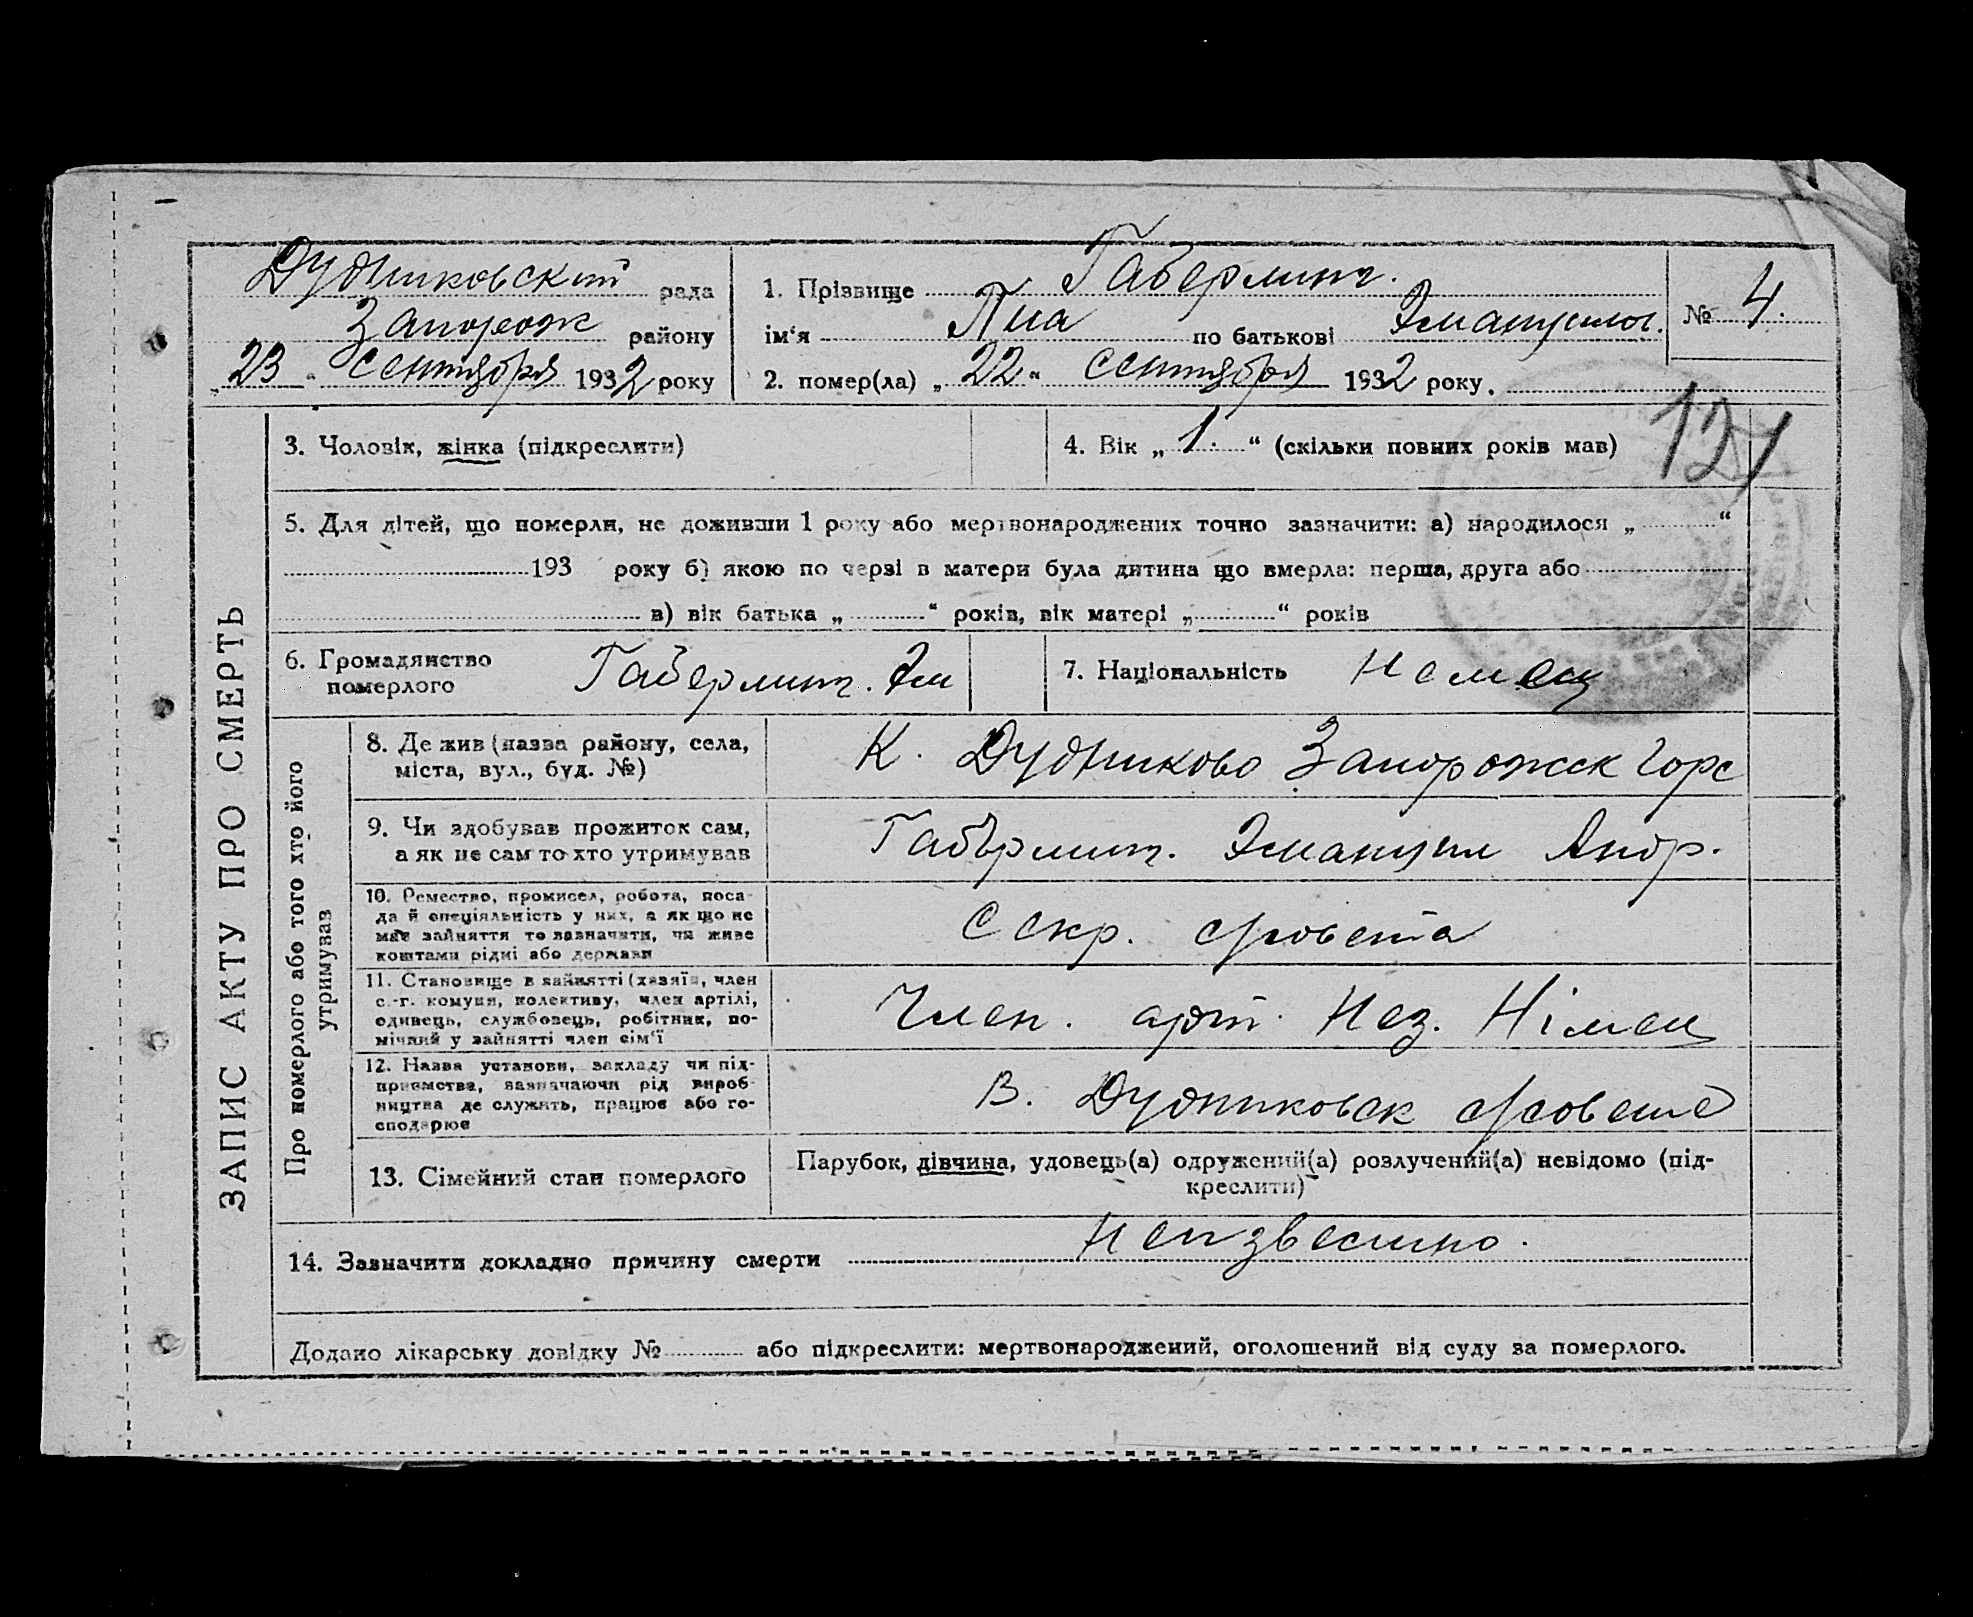 Дудниковский рада
Запорож району
„23“ сентября 1932 року
1. Прізвище Габерлинг.
ім‘я по батькові
2. помер(ла) „22“ сентября 1932 року.
№ 4.
127
ЗАПИС АКТУ ПРО СМЕРТЬ
3. Чоловік, жінка (підкреслити)
4. Вік „1.“ (скільки повних років мав)
5. Для дітей, що померли, не доживши 1 року або мертвонароджених точно зазначити: а) народилося „ “
193 року б) якою по черзі в матери була дитина що вмерла: перша, друга або
в) вік батька „ “ років, вік матері „ “ років
6. Громадянство
померлого
Габерлинг. Эм
7. Національність Немец
Про померлого або того хто його
утримував
8. Де жив (назва району, села,
міста, вул., буд. №)
К. Дудниково Запорожск Горс
9. Чи здобував прожиток сам,
а як не сам то хто утримував
Габерлинг. Эмануил Андр.
10. Ремество, промисел, робота, поса-
да й спеціяльність у них, а як що не
має зайняття то зазначити, чи живе
коштами рідні або держави
Секр. с/совета
11. Становище в зайнятті (хазяїн, член
с.-г. комуни, колективу, член артілі,
одивець, службовець, робітник, по-
мічний у зайнятті член сім‘ї
Член. арт. Нез. Німец
12. Назва установи, закладу чи під-
приємства, зазначаючи рід вироб-
ництва де служить, працює або го-
сподарює
В. Дудниковск с/совете
13. Сімейний стан померлого
Парубок, дівчина, удовець(а) одружений(а) розлучений(а) невідомо (під-
креслити)
14. Зазначити докладно причину смерти Неизвестно.
Додано лікарську довідку № або підкреслити: мертвонароджений, оголошений від суду за померлого.